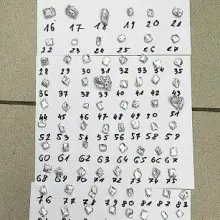 16 17 18 19 20 21
22 23 24 25 26 27
28 29 30 31 32 33 34 35
36 37 38 39 40 41 42 43
44 45 46 47 48 49 50 51
52 53 54 55 56 57 58 59
60 61 62 63 64 65 66 67
68 69 70 71 72 73 74 75